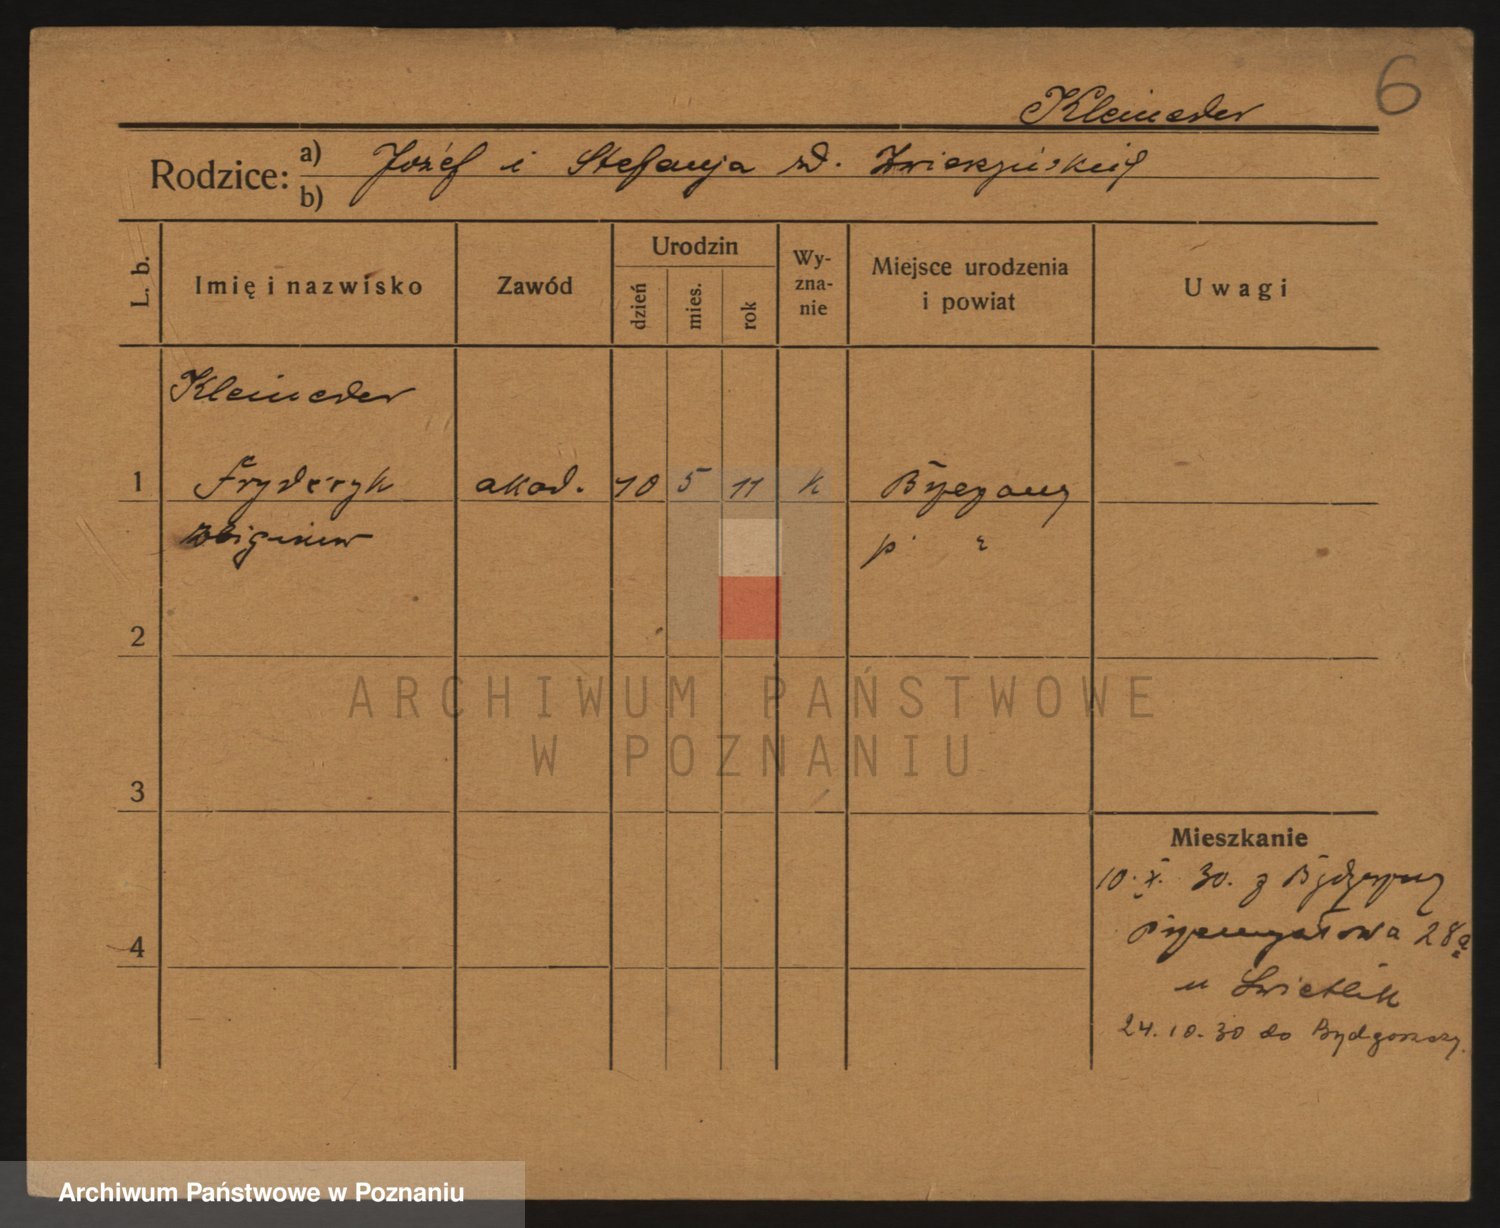 6
Kleineder
Rodzice: a) Józef i Stefanja zd.
b)
L. b.
Imię i nazwisko
Zawód
Urodzin
dzień
mies.
rok
Wy-
zna-
nie
Miejsce urodzenia
i powiat
Uwagi
Kleineder
1 Fryderyk akad. 10 5 11 k
Zbigniew p.
2
ARCHIWUM PAŃSTWOWE
W POZNANIU
3
Mieszkanie
10. X. 30. z Bydgoszczy
4 28a
u Świetlik
24.10.30 do Bydgoszczy.
Archiwum Państwowe w Poznaniu